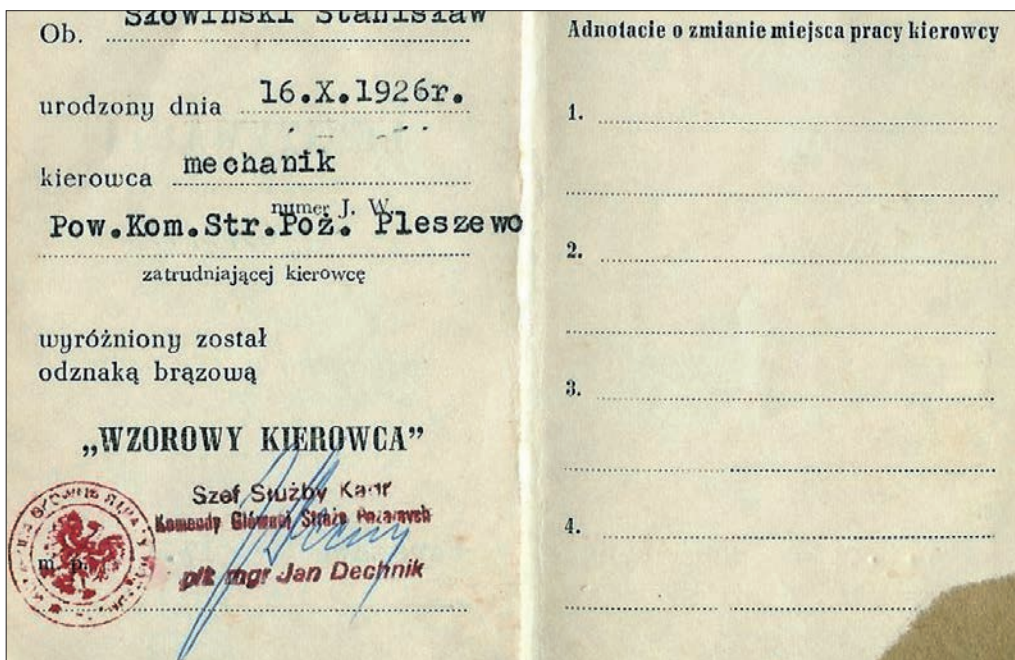 Ob. Słowiński Stanisław
urodzony dnia 16.X.1926r.
kierowca mechanik
numer J. W.
Pow.Kom.Str.Poż. Pleszewo
zatrudniającej kierowcę
wyróżniony został
odznaką brązową
„WZOROWY KIEROWCA”
Szef Służby Kadr
Komendy Głównej Straży Pożarnych
m. p.
płk mgr Jan Dechnik
Adnotacie o zmianie miejsca pracy kierowcy
1.
2.
3.
4.